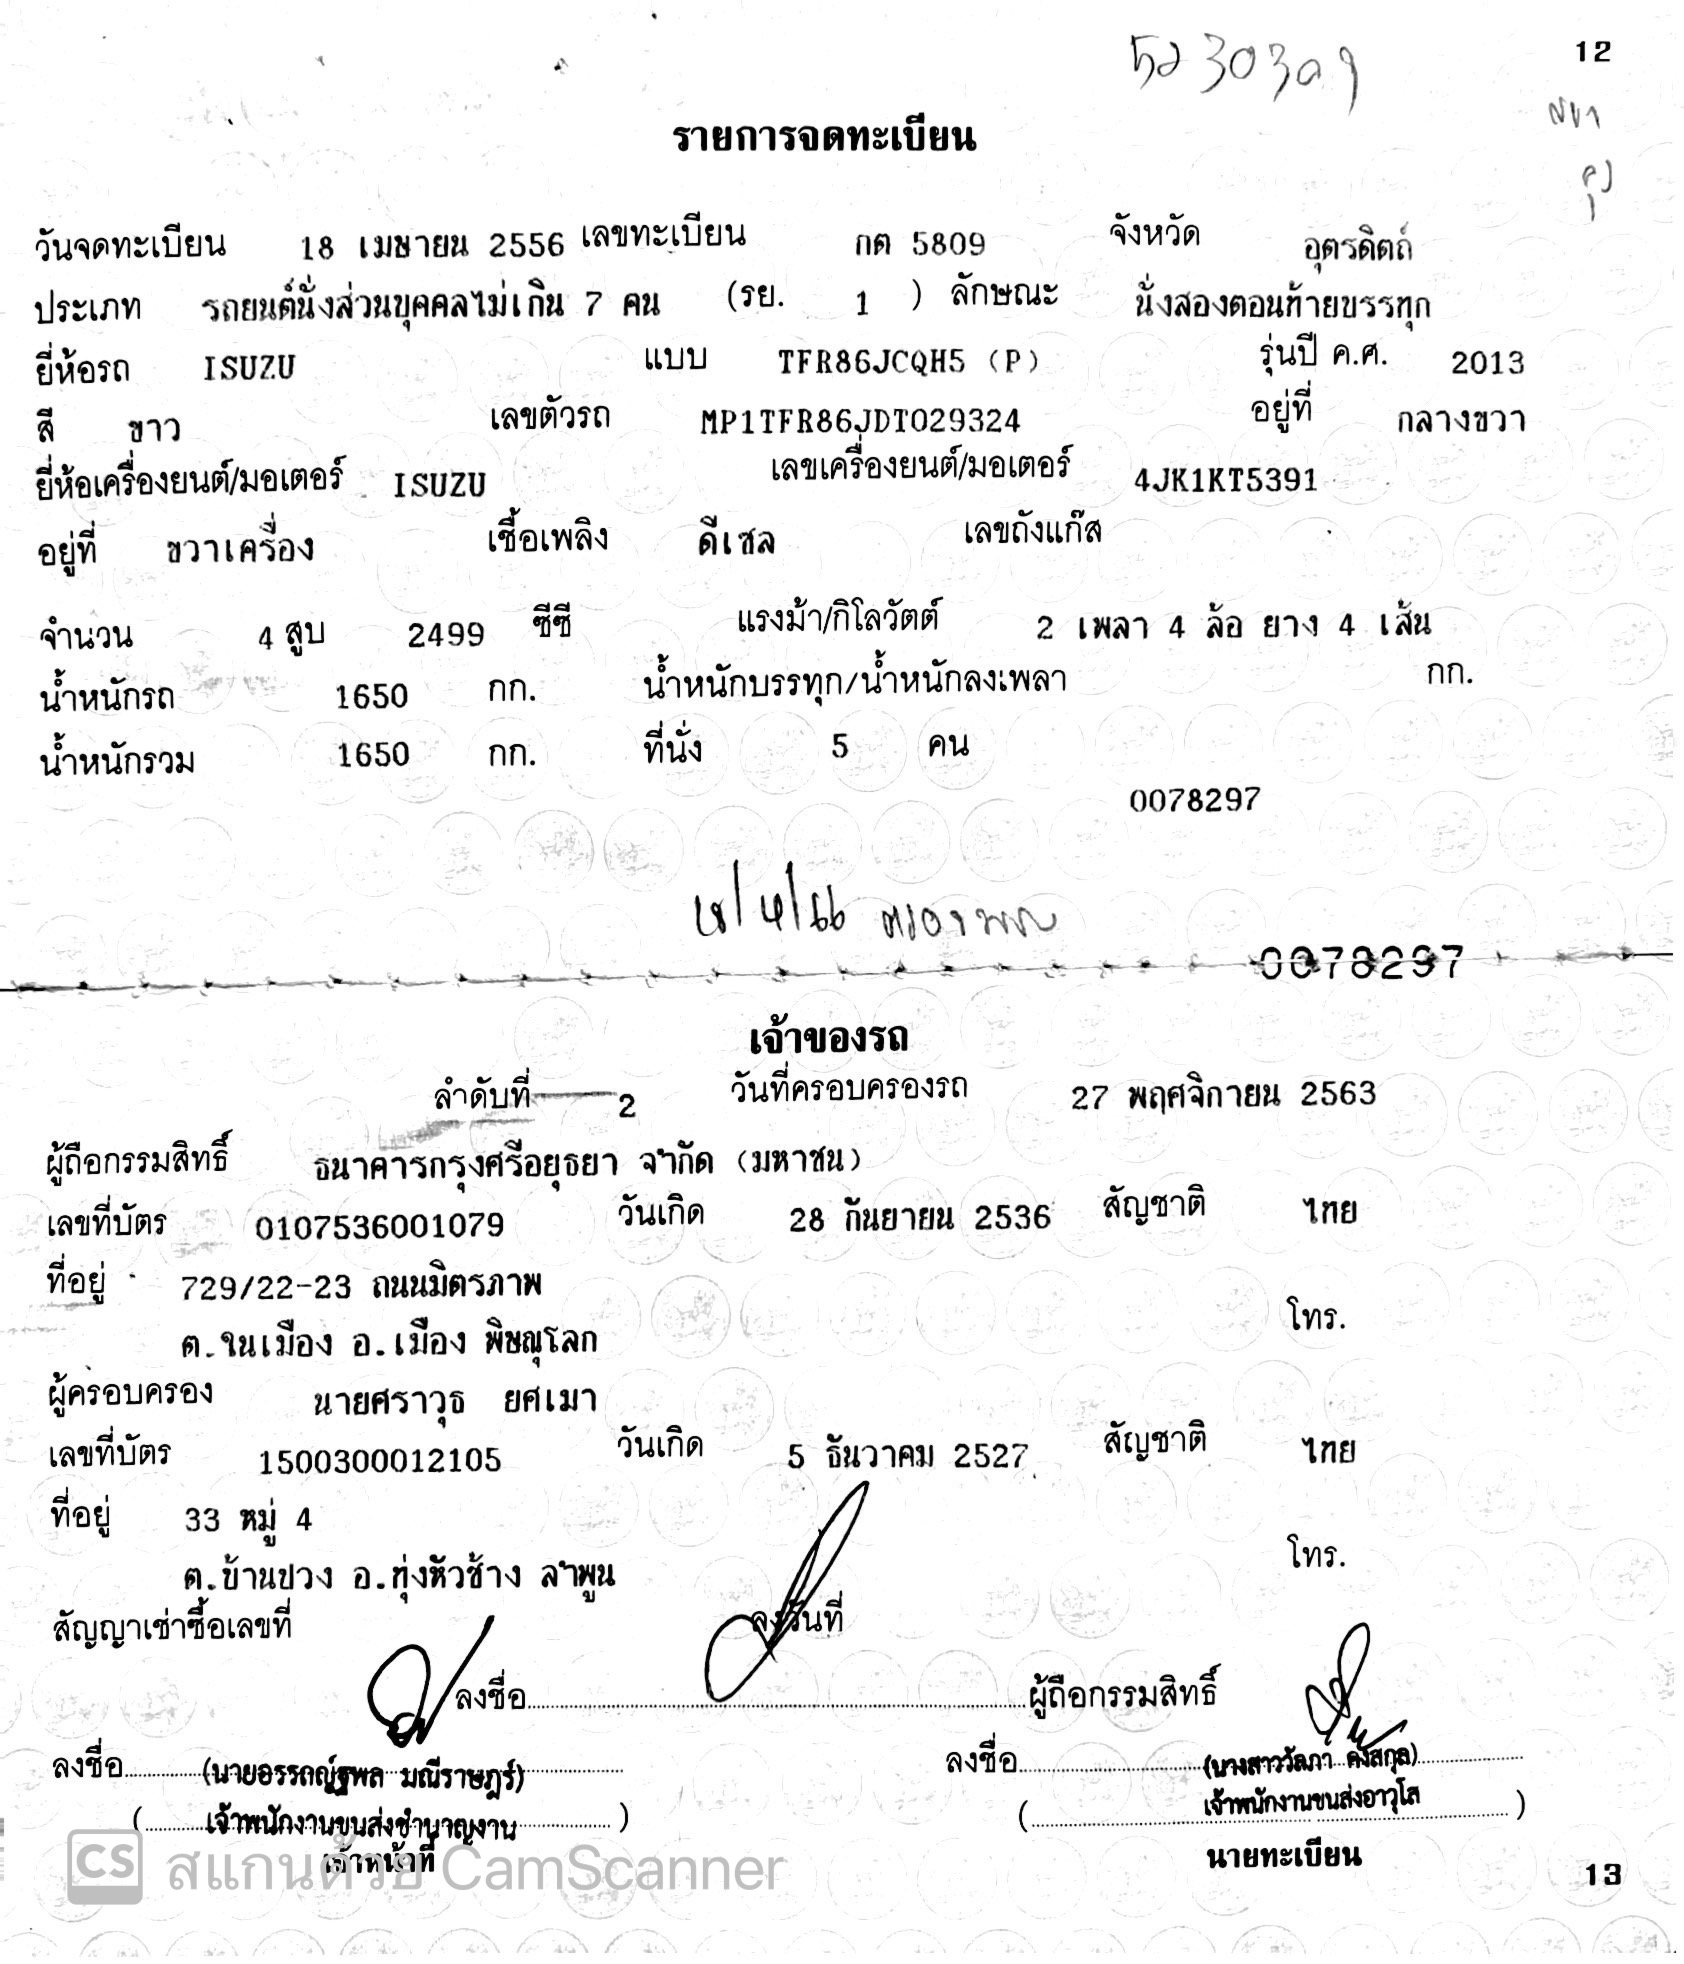 12
รายการจดทะเบียน
วันจดทะเบียน 18 เมษายน 2556 เลขทะเบียน กต 5809 จังหวัด อุตรดิตถ์
ประเภท รถยนต์นั่งส่วนบุคคลไม่เกิน 7 คน (รย. 1 ) ลักษณะ นั่งสองตอนท้ายบรรทุก
ยี่ห้อรถ ISUZU แบบ TFR86JCQH5 (P) รุ่นปี ค.ศ. 2013
สี ขาว เลขตัวรถ MP1TFR86JDT029324 อยู่ที่ กลางขวา
ยี่ห้อเครื่องยนต์/มอเตอร์ ISUZU เลขเครื่องยนต์/มอเตอร์ 4JK1KT5391
อยู่ที่ ขวาเครื่อง เชื้อเพลิง ดีเซล เลขถังแก๊ส
จำนวน 4 สูบ 2499 ซีซี แรงม้า/กิโลวัตต์ 2 เพลา 4 ล้อ ยาง 4 เส้น
น้ำหนักรถ 1650 กก. น้ำหนักบรรทุก/น้ำหนักลงเพลา กก.
น้ำหนักรวม 1650 กก. ที่นั่ง 5 คน
0078297
0078297
เจ้าของรถ
ลำดับที่ 2 วันที่ครอบครองรถ 27 พฤศจิกายน 2563
ผู้ถือกรรมสิทธิ์ ธนาคารกรุงศรีอยุธยา จำกัด (มหาชน)
เลขที่บัตร 0107536001079 วันเกิด 28 กันยายน 2536 สัญชาติ ไทย
ที่อยู่ 729/22-23 ถนนมิตรภาพ
โทร.
ต.ในเมือง อ.เมือง พิษณุโลก
ผู้ครอบครอง นายศราวุธ ยศเมา
เลขที่บัตร 1500300012105 วันเกิด 5 ธันวาคม 2527 สัญชาติ ไทย
ที่อยู่ 33 หมู่ 4
โทร.
ต.บ้านปวง อ.ทุ่งหัวช้าง ลำพูน
สัญญาเช่าซื้อเลขที่ ลงวันที่
ลงชื่อ ผู้ถือกรรมสิทธิ์
ลงชื่อ (นายอรรถญ์ฐพล มณีราษฎร์) ลงชื่อ (นางสาววัลภา คังสกุล)
( เจ้าพนักงานขนส่งชำนาญงาน ) ( เจ้าพนักงานขนส่งอาวุโส )
เจ้าหน้าที่ นายทะเบียน
CS สแกนด้วย CamScanner
13